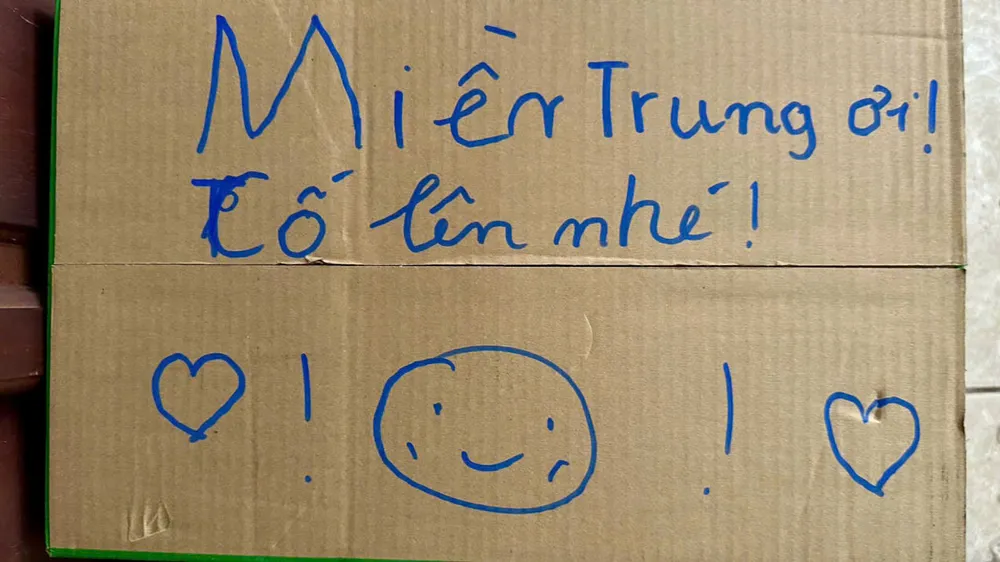 Miền Trung ơi!
Cố lên nhé!
! !